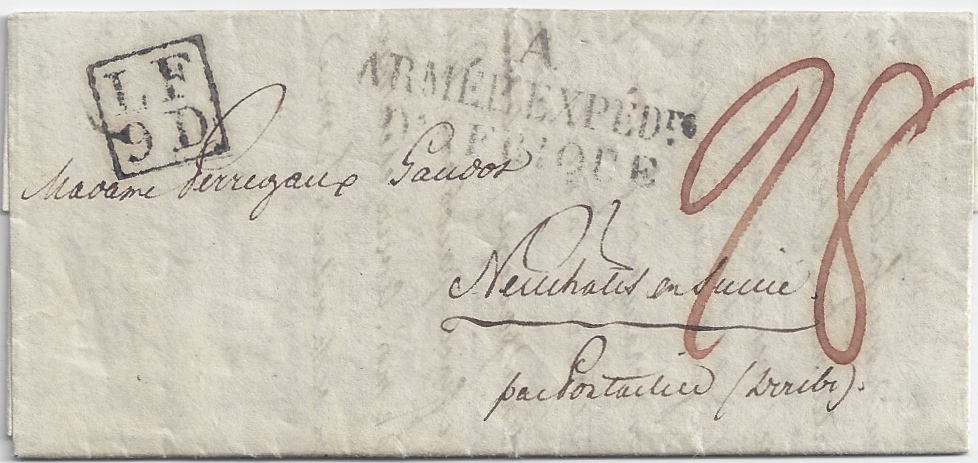 LF
9D
A
ARMÉE EXPÉD.re
D'AFRIQUE
Madame Perregaux Gaudot
Neuchatel en Suisse.
par Pontarlier (Doubs).
28